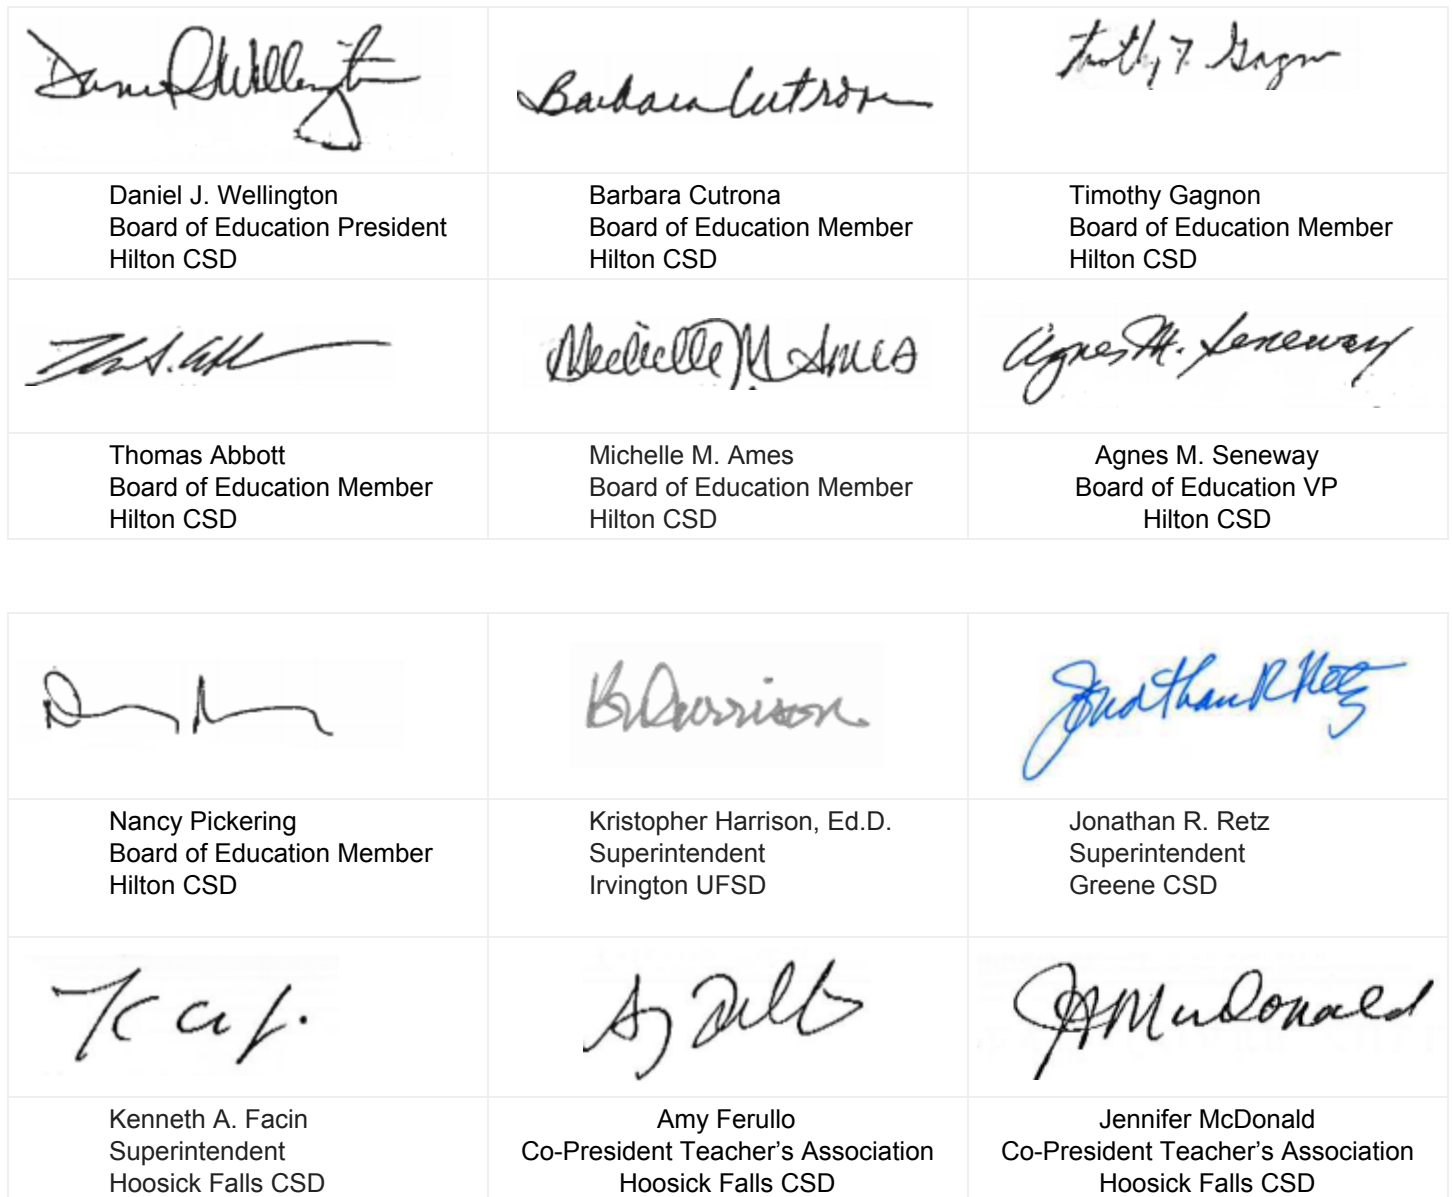 Daniel J. Wellington
Board of Education President
Hilton CSD
Barbara Cutrona
Barbara Cutrona
Board of Education Member
Hilton CSD
Timothy Gagnon
Board of Education Member
Hilton CSD
Thomas Abbott
Board of Education Member
Hilton CSD
Michelle M Ames
Michelle M. Ames
Board of Education Member
Hilton CSD
Agnes M. Seneway
Agnes M. Seneway
Board of Education VP
Hilton CSD
Nancy Pickering
Board of Education Member
Hilton CSD
Kristopher Harrison, Ed.D.
Superintendent
Irvington UFSD
Jonathan R Retz
Jonathan R. Retz
Superintendent
Greene CSD
Kenneth A. Facin
Superintendent
Hoosick Falls CSD
Amy Ferullo
Co-President Teacher’s Association
Hoosick Falls CSD
JAMcDonald
Jennifer McDonald
Co-President Teacher’s Association
Hoosick Falls CSD